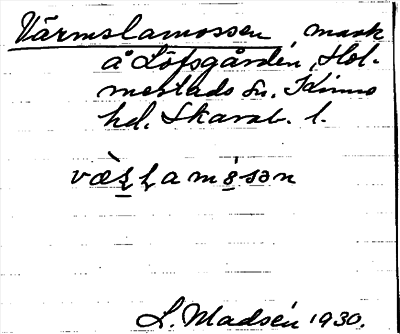 Värmslamossen, mosse
å Löfsgården, Hol-
mestads sn. Kinne
hd. Skarab. l.
L. Madsén 1930.